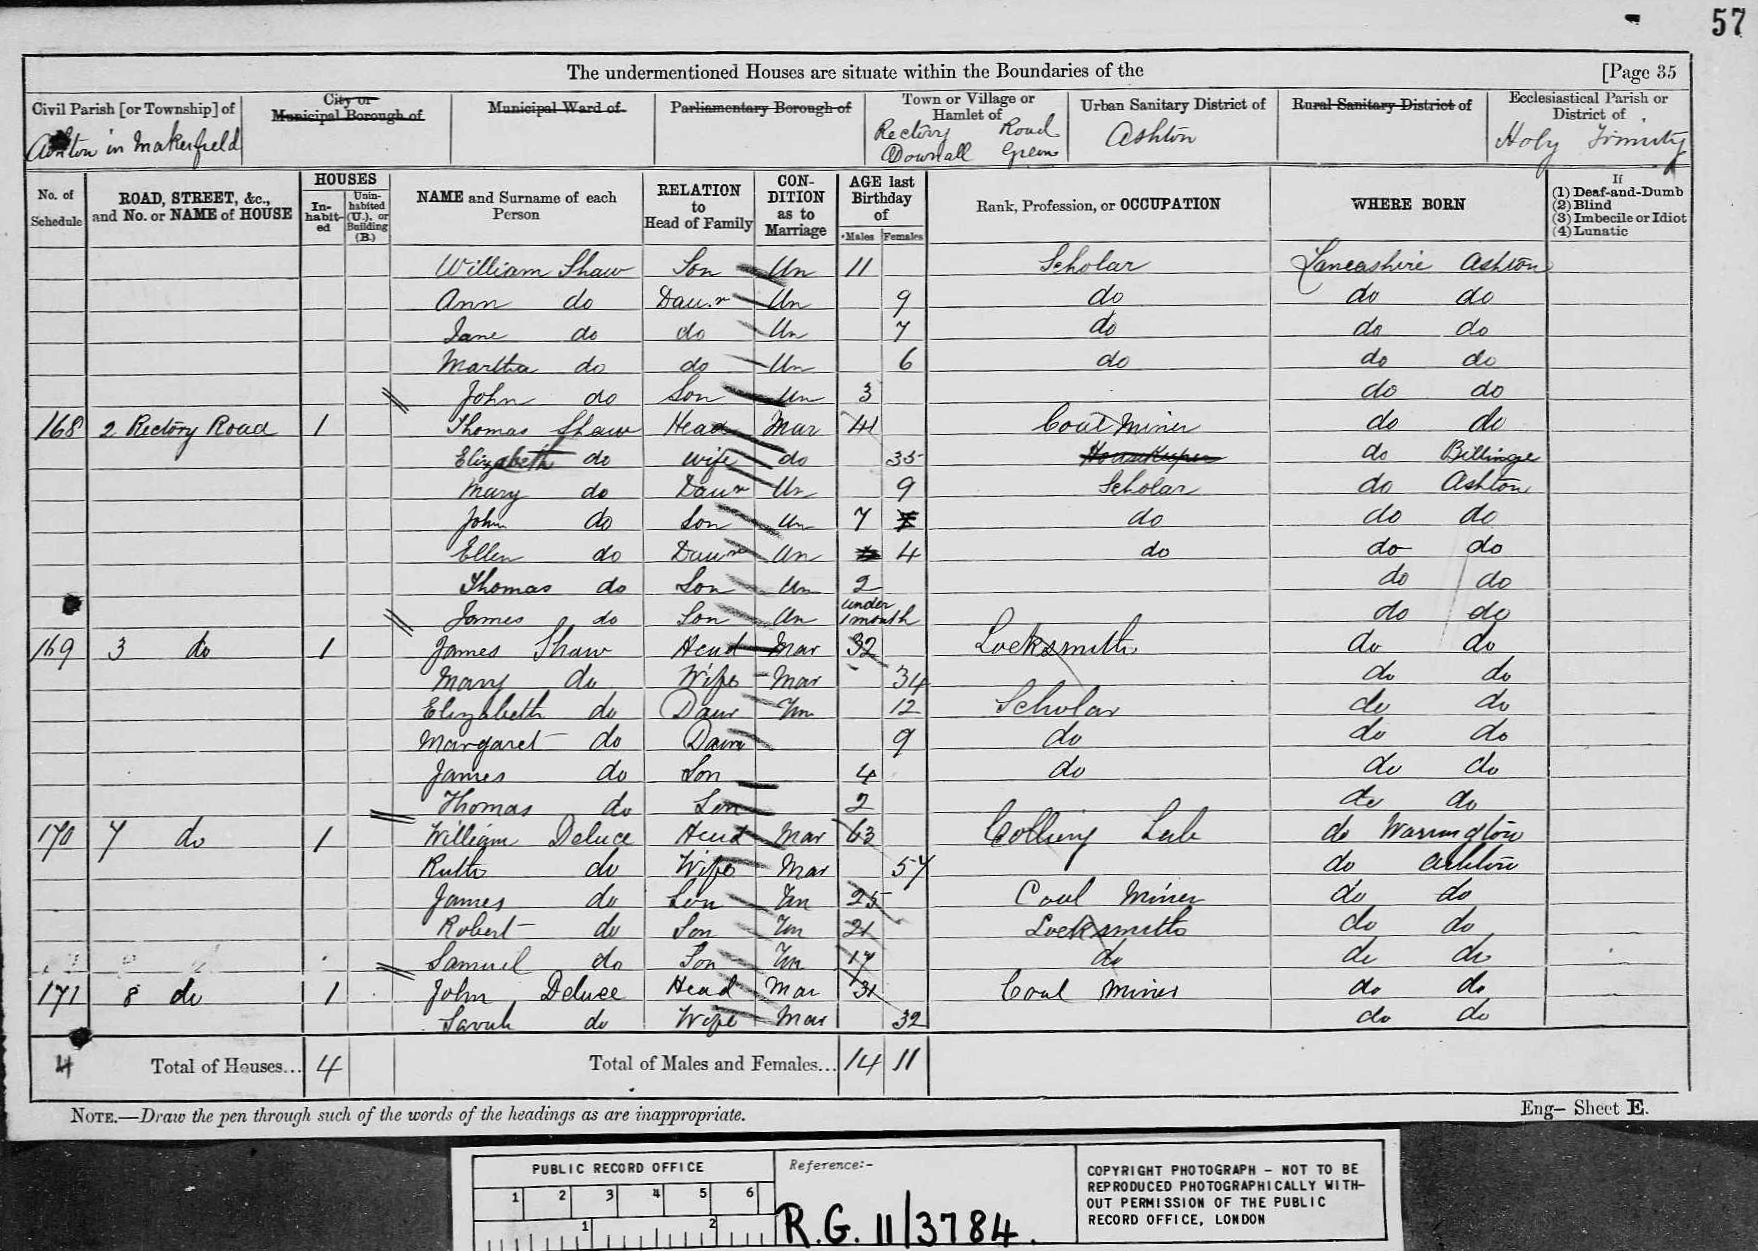 57
The undermentioned Houses are situate within the Boundaries of the [Page 35
Civil Parish [or Township] of City or Municipal Borough of Municipal Ward of Parliamentary Borough of Town or Village or Hamlet of Urban Sanitary District of Rural Sanitary District of Ecclesiastical Parish or District of
Ashton in Makerfield Rectory Road Downall Green Ashton Holy Trinity
No. of Schedule ROAD, STREET, &c., and No. or NAME of HOUSE HOUSES In-habit-ed Unin-habited (U.), or Building (B.) NAME and Surname of each Person RELATION to Head of Family CON-DITION as to Marriage AGE last Birthday of Males Females Rank, Profession, or OCCUPATION WHERE BORN If (1) Deaf-and-Dumb (2) Blind (3) Imbecile or Idiot (4) Lunatic
William Shaw Son Un 11 Scholar Lancashire Ashton
Ann do Daur Un 9 do do do
Jane do do Un 7 do do do
Martha do do Un 6 do do do
John do Son Un 3 do do
168 2 Rectory Road 1 Thomas Shaw Head Mar 41 Coal Miner do do
Elizabeth do Wife do 35 Housekeeper do Billinge
Mary do Daur Un 9 Scholar do Ashton
John do Son Un 7 do do do
Ellen do Daur Un 4 do do do
Thomas do Son Un 2 do do
James do Son Un under 1 month do do
169 3 do 1 James Shaw Head Mar 32 Locksmith do do
Mary do Wife Mar 34 do do
Elizabeth do Daur Un 12 Scholar do do
Margaret do Daur 9 do do do
James do Son 4 do do do
Thomas do Son 2 do do
170 7 do 1 William Deluce Head Mar 63 Colliery Lab do Warrington
Ruth do Wife Mar 57 do Ashton
James do Son Un 25 Coal Miner do do
Robert do Son Un 21 Locksmith do do
Samuel do Son Un 17 do do do
171 8 do 1 John Deluce Head Mar 31 Coal Miner do do
Sarah do Wife Mar 32 do do
4 Total of Houses... 4 Total of Males and Females... 14 11
NOTE.—Draw the pen through such of the words of the headings as are inappropriate. Eng– Sheet E.
PUBLIC RECORD OFFICE
1 2 3 4 5 6
1 2
Reference:-
R.G. 11/3784.
COPYRIGHT PHOTOGRAPH - NOT TO BE
REPRODUCED PHOTOGRAPHICALLY WITH-
OUT PERMISSION OF THE PUBLIC
RECORD OFFICE, LONDON